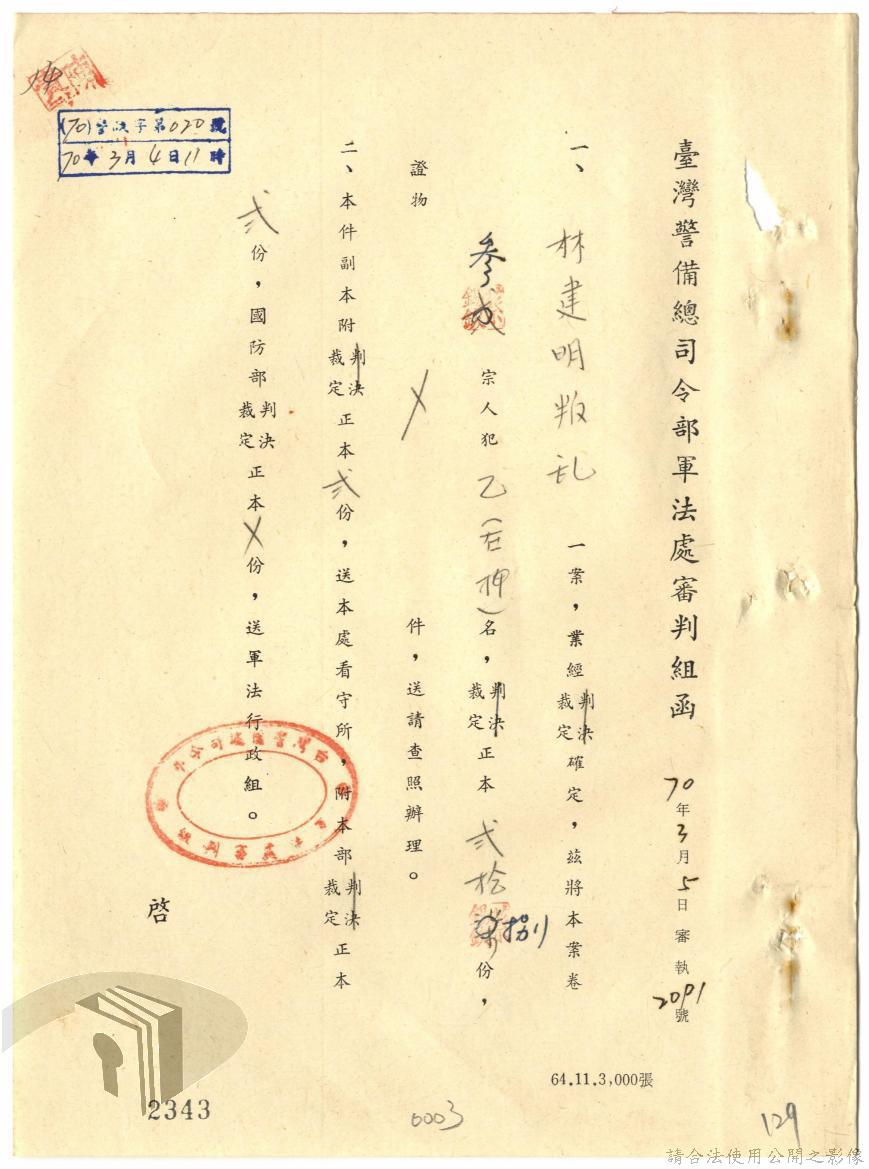 臺灣警備總司令部軍法處審判組函
70年3月5日審執2091號
一、林建明叛乱一案,業經判決裁定確定,茲將本案卷
參宗人犯乙(在押)名,判決裁定正本貳拾捌份,
證物 X 件,送請查照辦理。
二、本件副本附判決裁定正本貳份,送本處看守所,附本部判決裁定正本
貳份,國防部判決裁定正本X份,送軍法行政組。
啓
(70)
字第020號
70年3月4日11時
64.11.3,000張
2343
0003
129
請合法使用公開之影像